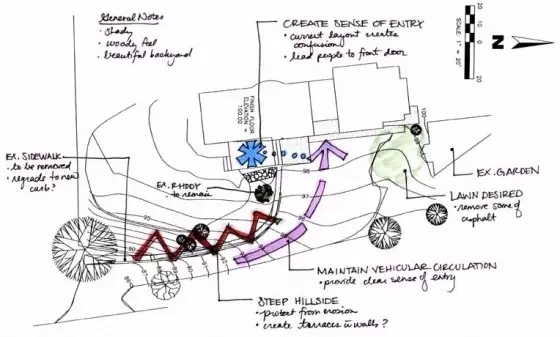 General Notes
• shady
• woody feel
• beautiful backyard
CREATE SENSE OF ENTRY
• current layout creates
confusion
• lead people to front door
SCALE: 1" = 20'
20
10
0
20
N
FINISH FLOOR
ELEVATION =
100.00
100
EX. SIDEWALK
• to be removed
• regrade to new
curb?
EX. RHODY
to remain
EX. GARDEN
LAWN DESIRED
• remove some of
asphalt
98
96
95
90
MAINTAIN VEHICULAR CIRCULATION
• provide clear sense of entry
STEEP HILLSIDE
• protect from erosion
• create terraces w walls?